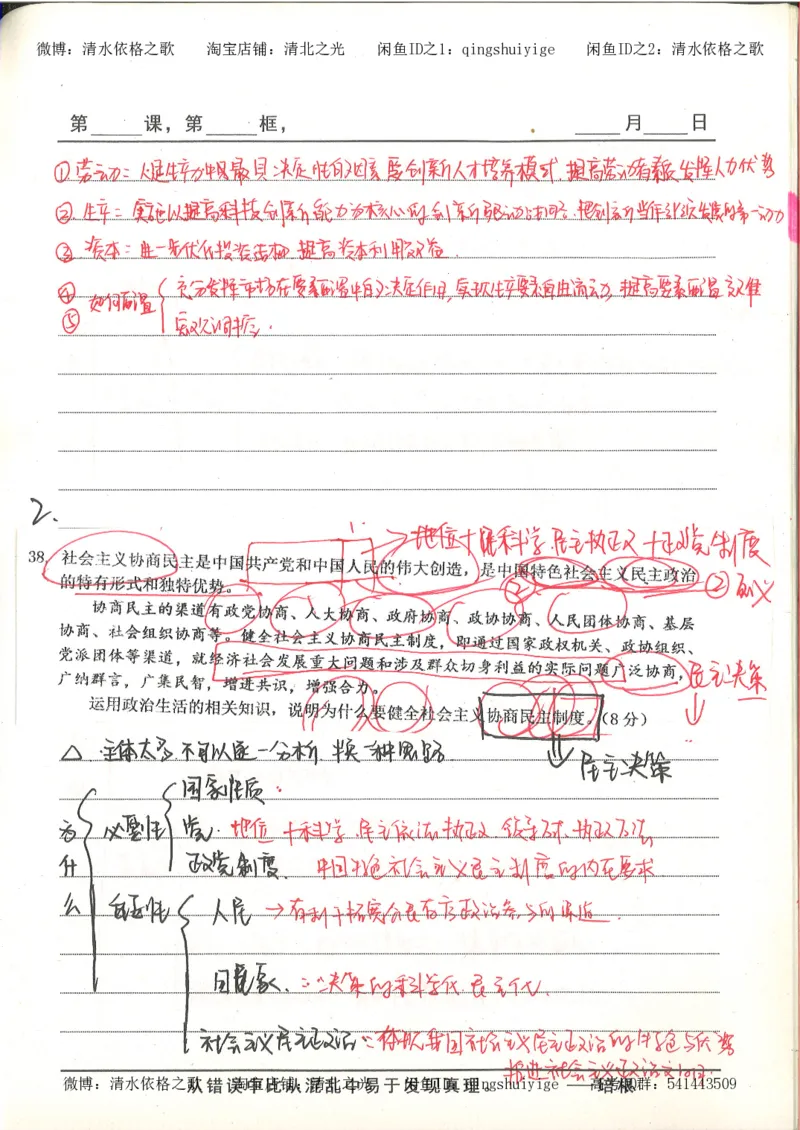 微博：清水依格之歌 淘宝店铺：清北之光 闲鱼ID之1：qingshuiyige 闲鱼ID之2：清水依格之歌
第 课，第 框， 月 日
①劳动：人是生产力中最具决定性的因素 要创新人才培养模式，提高劳动者素质 发挥人力优势
②生产：实施以提高科技创新能力为核心的创新驱动战略，把创新当作引领发展的第一动力
③资本：进一步优化投资结构 提高资本利用效益
④ 如何配置 充分发挥市场在资源配置中的决定作用，实现生产要素自由流动，提高要素配置效率
⑤ 宏观调控
2.
1. →地位+民主科学 民主执政+政党制度
38. 社会主义协商民主是中国共产党和中国人民的伟大创造，是中国特色社会主义民主政治
的特有形式和独特优势。
② 意义
协商民主的渠道有政党协商、人大协商、政府协商、政协协商、人民团体协商、基层
协商、社会组织协商等。健全社会主义协商民主制度，即通过国家政权机关、政协组织、
党派团体等渠道，就经济社会发展重大问题和涉及群众切身利益的实际问题广泛协商，
民主决策
广纳群言，广集民智，增进共识，增强合力。
运用政治生活的相关知识，说明为什么要健全社会主义协商民主制度。(8分)
△ 主体太多，不可以逐一分析 换一种思路
民主决策
国家性质：
为什么 必要性 党：地位 +科学 民主依法执政 领导方式、执政方法
政党制度 中国特色社会主义民主制度的内在要求
重要性 人民 →有利于拓宽公民有序政治参与的渠道
国家：决策的科学化 民主化
社会主义民主政治：体现我国社会主义民主政治的特色与优势
推进社会主义政治文明
微博：清水依格之歌 淘宝店铺：清北之光 闲鱼ID：qingshuiyige 高考Q群：541443509
从错误中比从混乱中易于发现真理。 ——培根